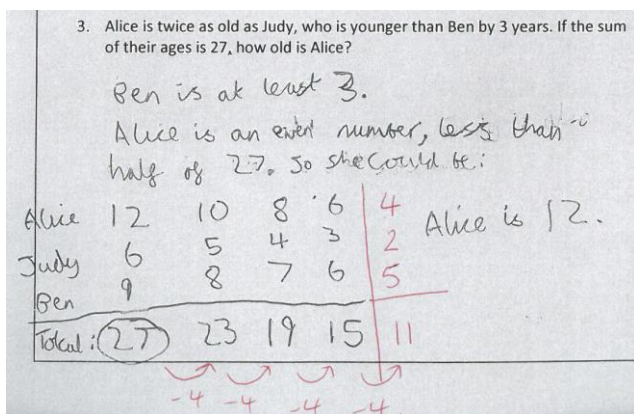 3. Alice is twice as old as Judy, who is younger than Ben by 3 years. If the sum
of their ages is 27, how old is Alice?
Ben is at least 3.
Alice is an even number, less than
half of 27. So she could be:
Alice 12 10 8 6 4 Alice is 12.
Judy 6 5 4 3 2
Ben 9 8 7 6 5
Total: 27 23 19 15 11
-4 -4 -4 -4